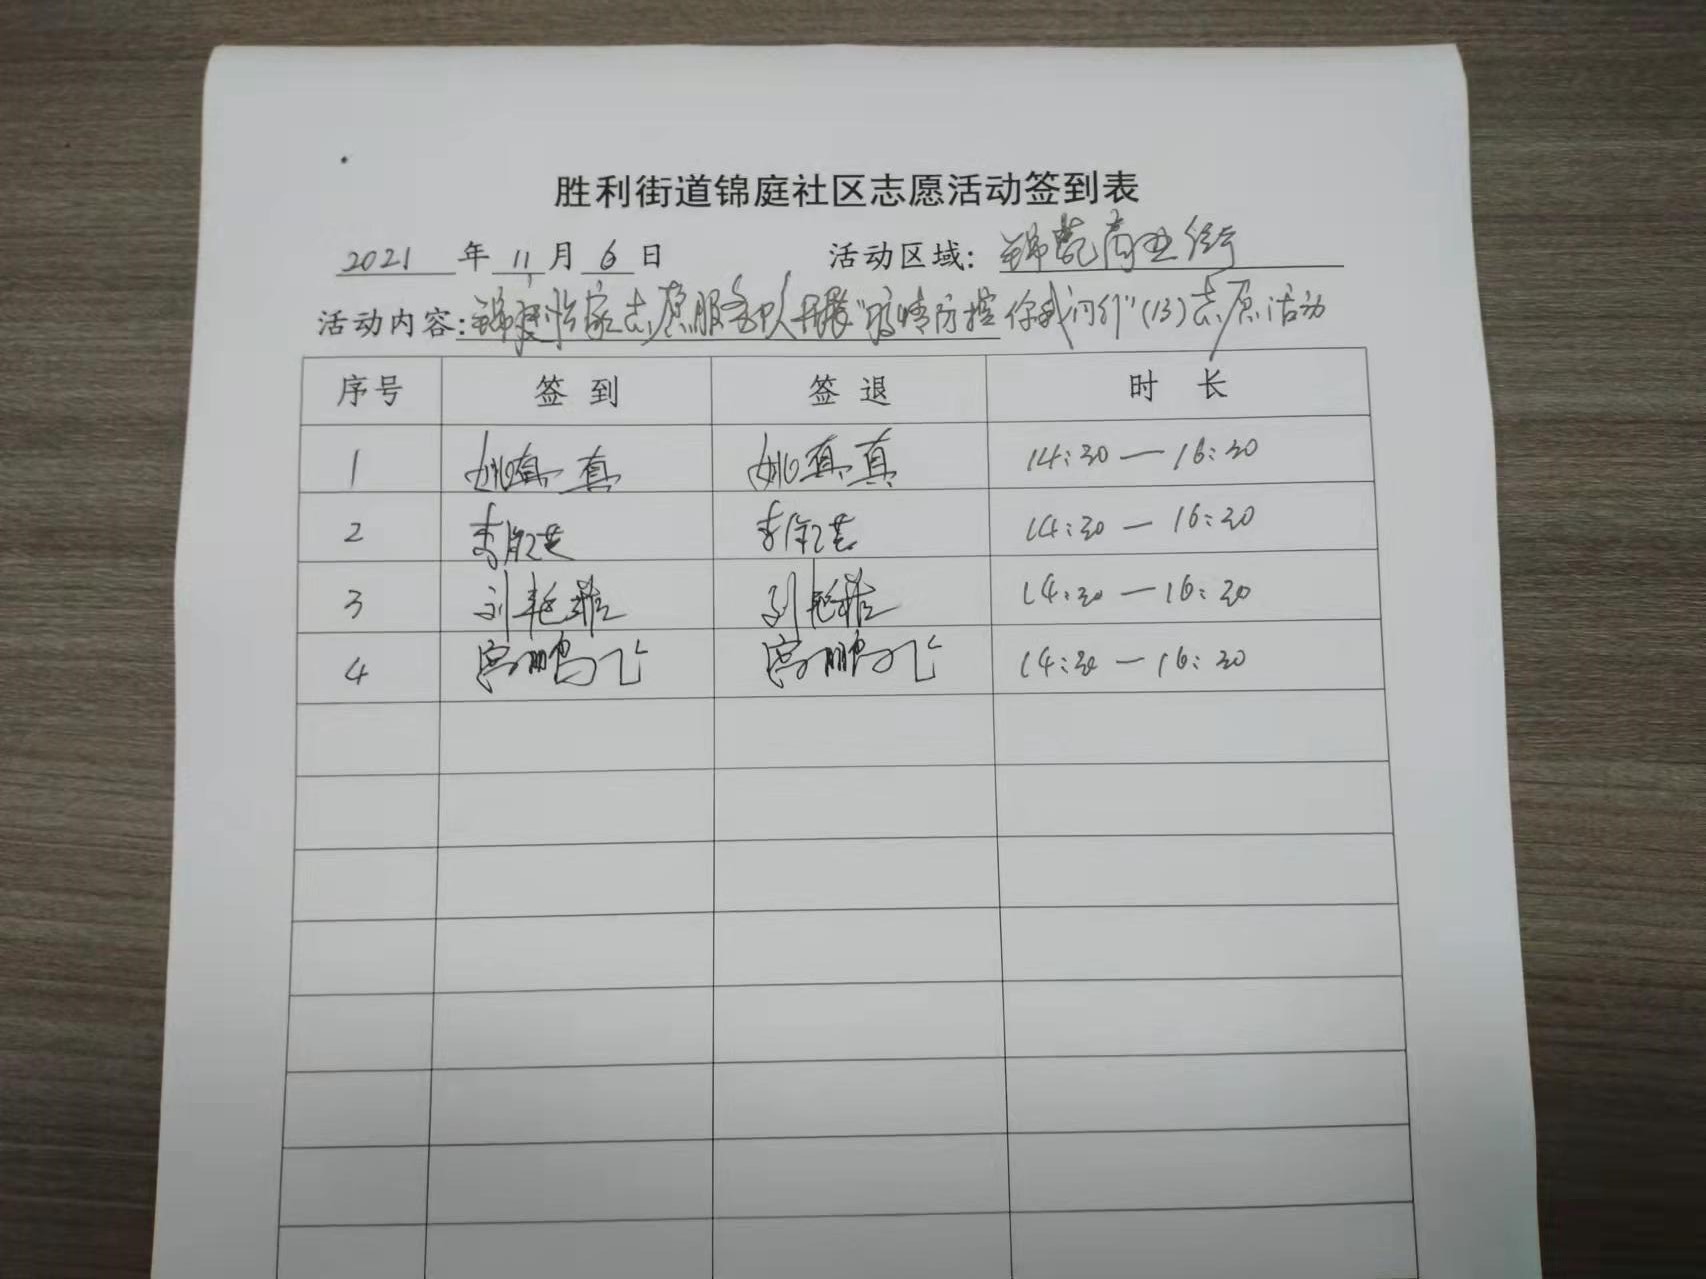 胜利街道锦庭社区志愿活动签到表
2021 年 11 月 6 日 活动区域: 锦苑商业街
活动内容: 锦庭 家志愿服务队开展"疫情防控你我同行"(13)志愿活动
序号 签到 签退 时 长
1 姚真真 姚真真 14:30—16:30
2 李 芝 李 芝 14:30—16:30
3 刘艳 刘艳 14:30—16:30
4 宫鹏飞 宫鹏飞 14:30—16:30